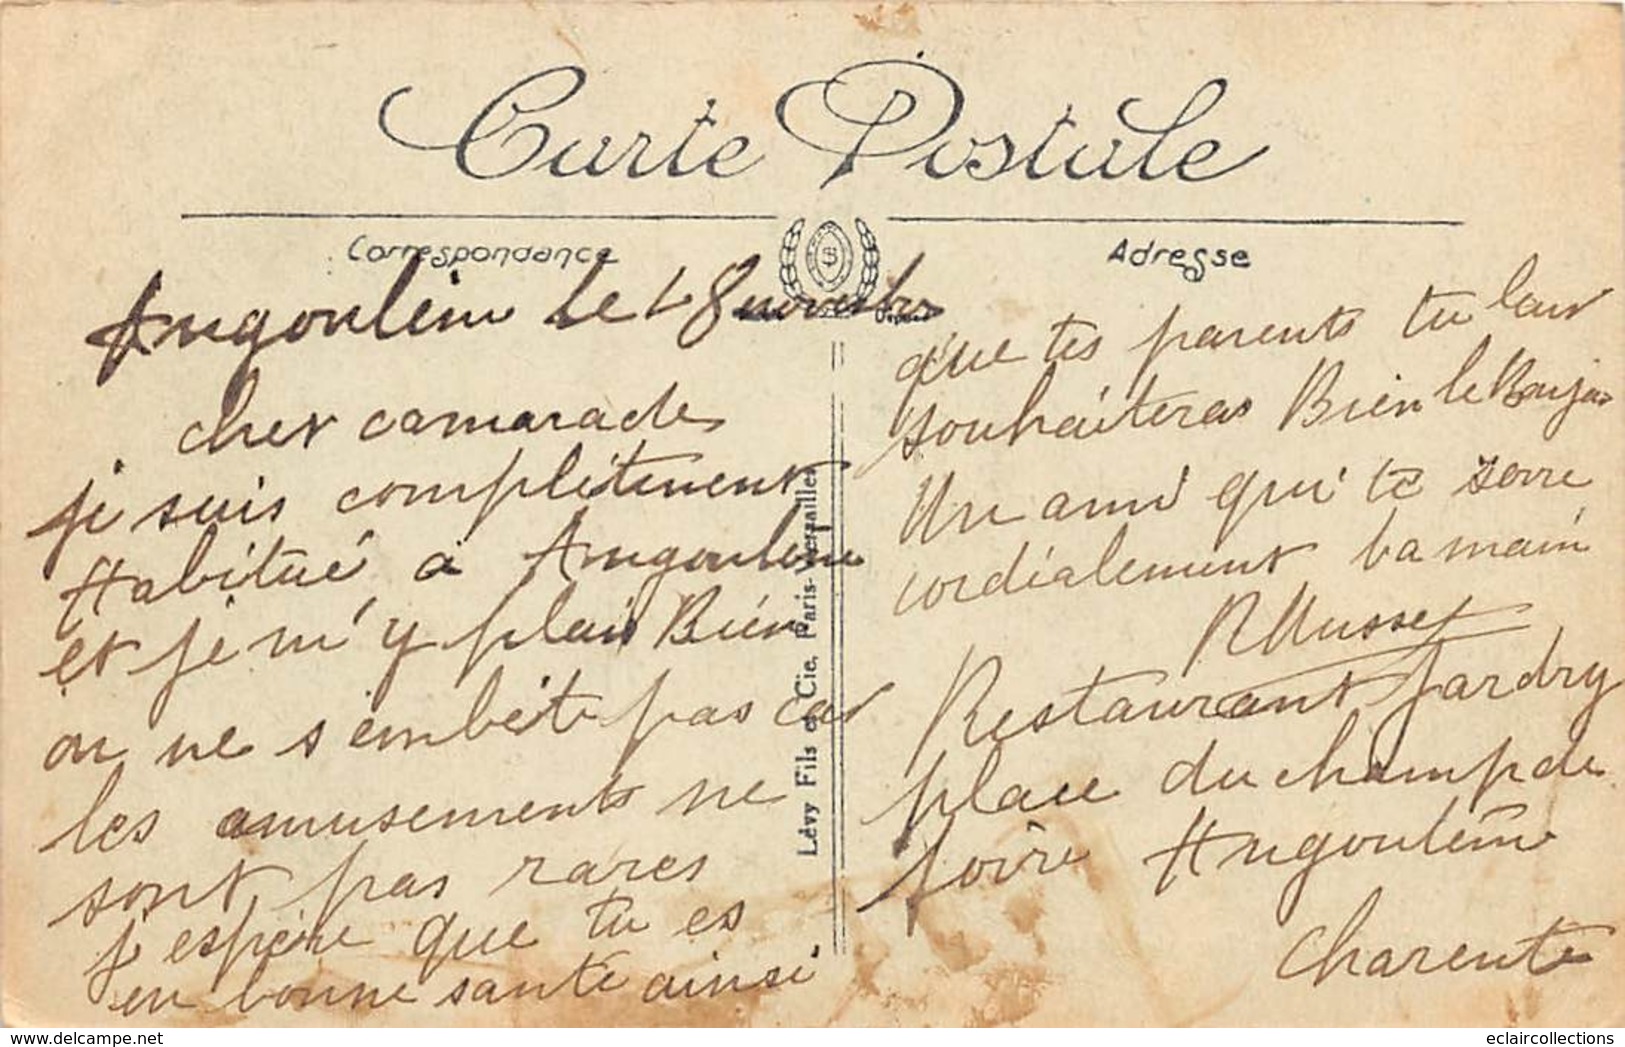 Carte Postale
Correspondance
Angoulême le 18 novembre
cher camarade
je suis complètement
Habitué à Angoulême
et je m'y plais Bien
on ne s'embête pas car
les amusements ne
sont pas rares
j'espère que tu es
en bonne santé ainsi
Lévy Fils et Cie, Paris-Versailles
Adresse
que tes parents tu leur
souhaiteras Bien le Bonjour
Un ami qui te serre
cordialement la main
R Musset
Restaurant Jardry
place du champ de
foire Angoulême
Charente
eclaircollections